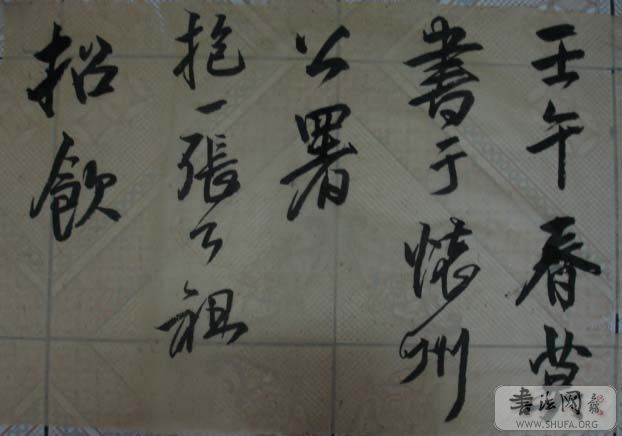 壬午春
書于懷州
公署
抱一張公祖
招飲
書法网
WWW.SHUFA.ORG